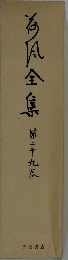 荷風全集
第二十九巻
岩波書店